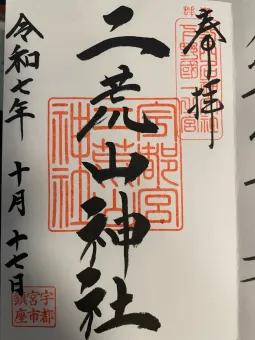 奉拝
二荒山神社
令和七年 十月 十七日
宇都宮
二荒山
神社
宇都宮市
鎮座